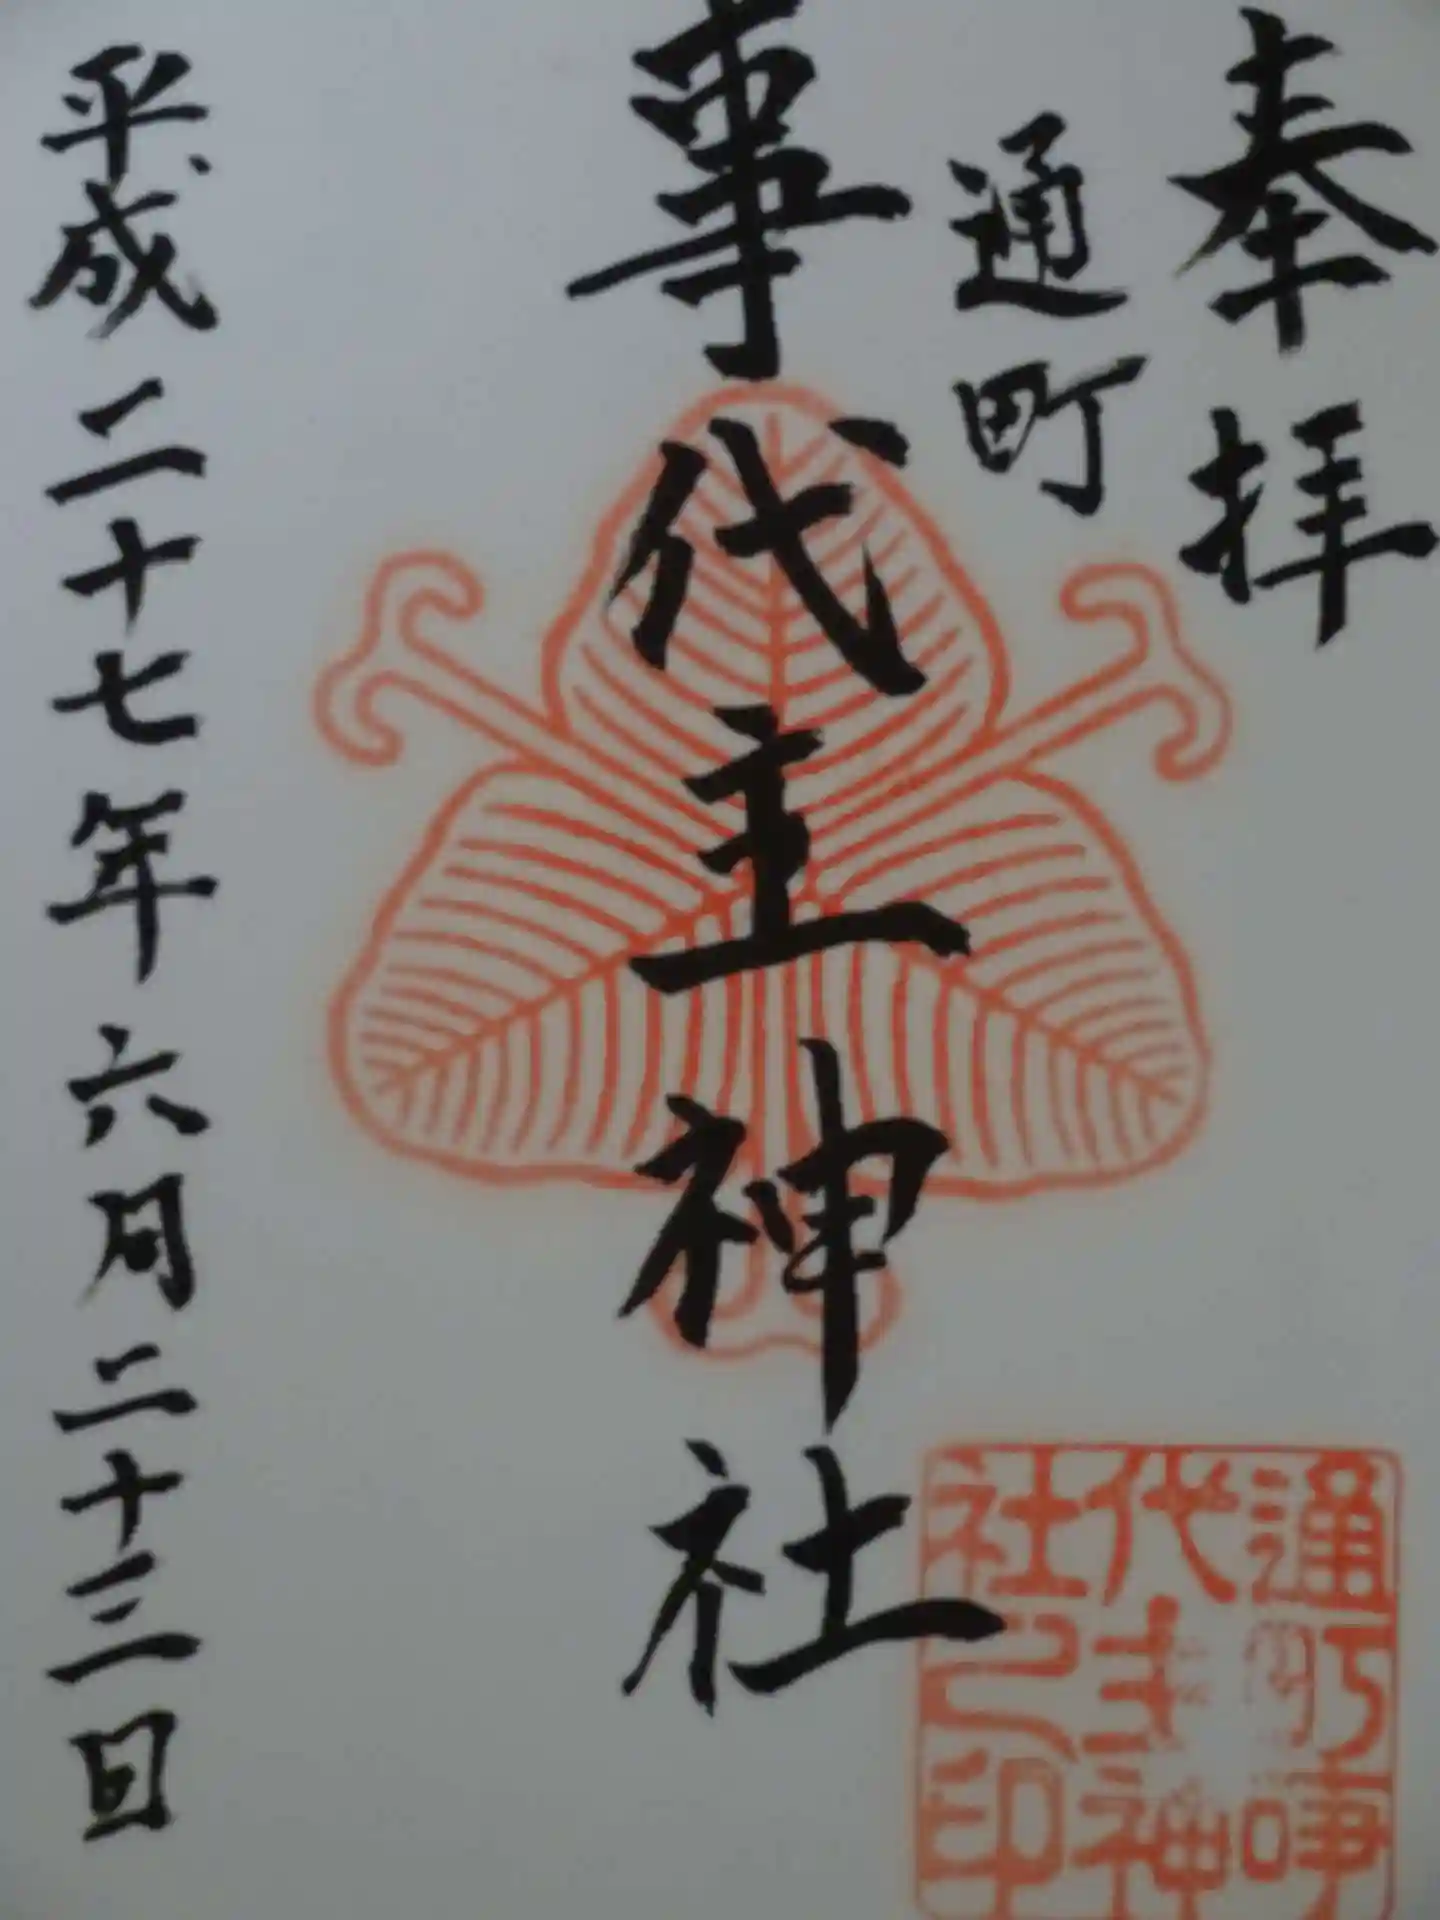 奉拝
通町
事代主神社
平成二十七年六月二十三日
通町事
代主神
社之印